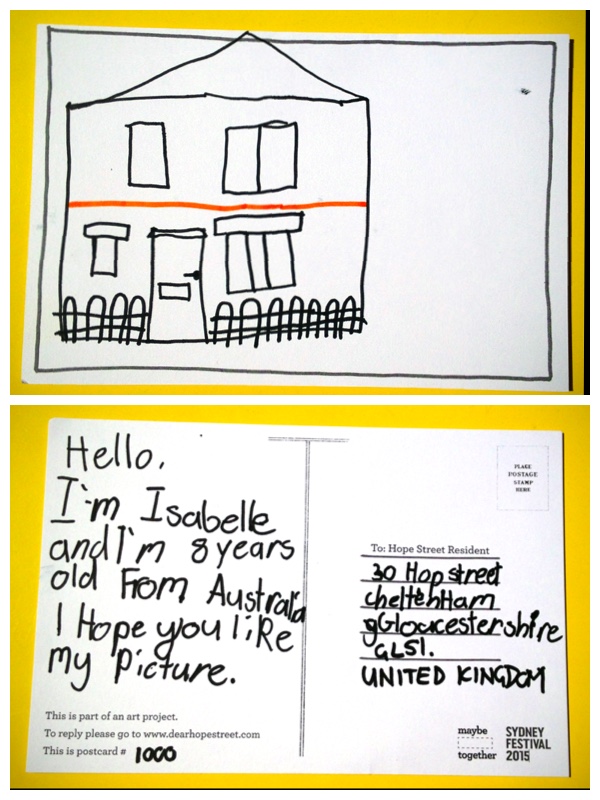 Hello,
I'm Isabelle
and I'm 8 years
old From Australia
I Hope you liKe
my Picture.
This is part of an art project.
To reply please go to www.dearhopestreet.com
This is postcard # 1000
PLACE
POSTAGE
STAMP
HERE
To: Hope Street Resident
30 Hop street
cheltenHam
gGloucestershire
GL51.
UNITED KINGDOM
maybe
together
SYDNEY
FESTIVAL
2015